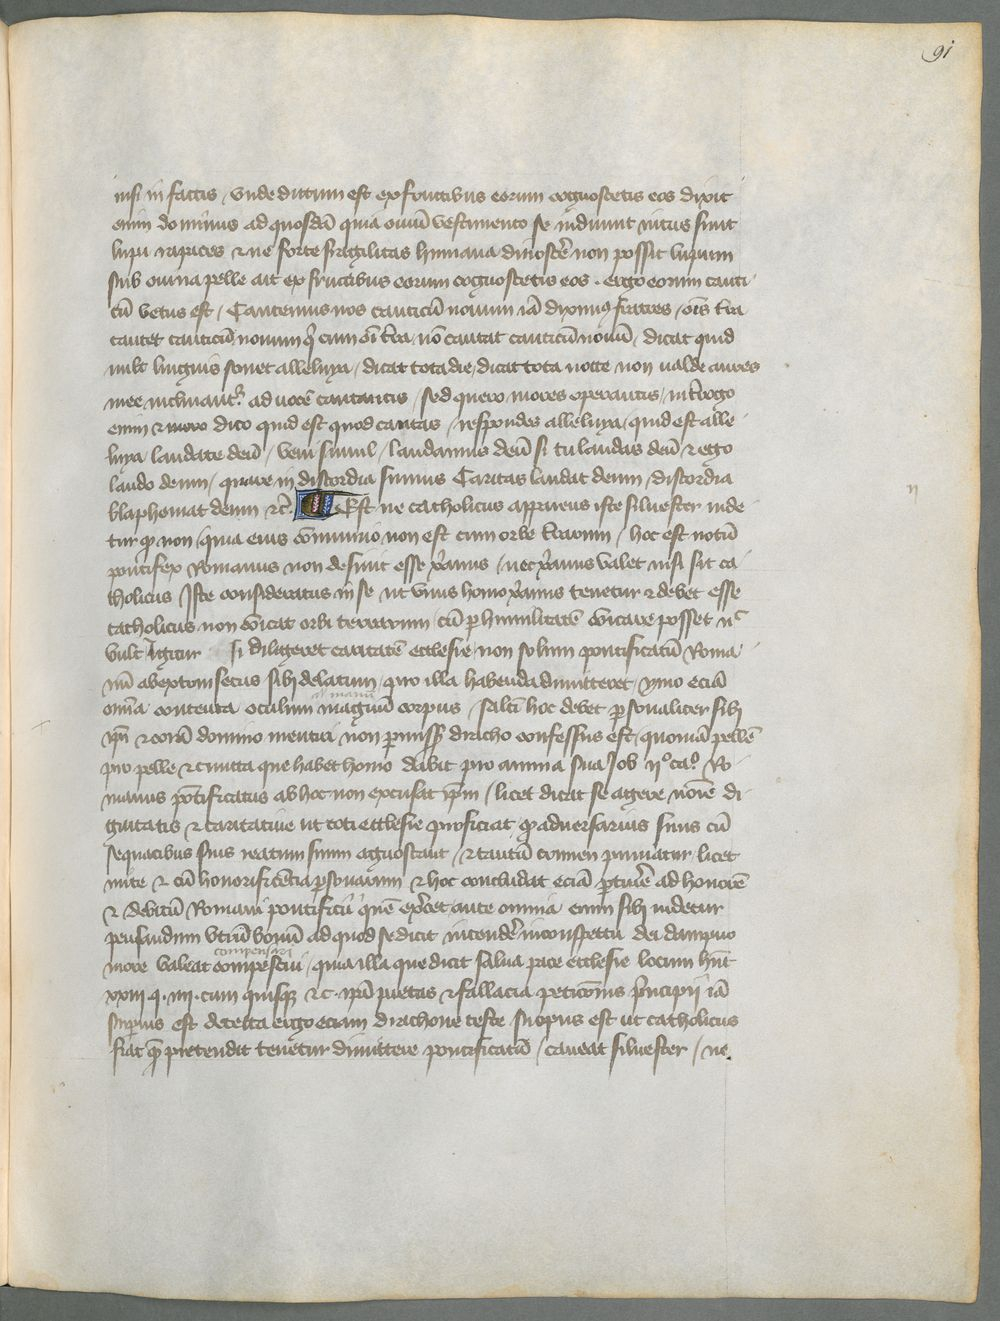 91
nisi in factis / vnde dictum est ex fructibus eorum cognoscetis eos dixit
enim dominus ad quosdā quia ouiū vestimento se induunt intus sunt
lupi rapaces & ne forte fragilitas humana dinoscē non possit lupum
sub ouina pelle ait ex fructibus eorum cognoscetis eos . ergo eorum canti
cū vetus est / Cantemus nos canticū nouum iā diximus fratres / oīs t̄ra
cantet canticū nouum qͥ cum oī t̄ra nō cantat canticū nouū / dicat quid
uult linguis sonet alleluya / dicat tota die / dicat tota nocte non ualde aures
mee inclinant᷑ ad uocē cantantis / sed quero mores operantis / int̄rogo
enim & dico quid est quod cantas / respondes alleluya / quid est alle
luya laudate deū / veni simul / laudamus deū si tu laudas deū & ego
laudo deum / quare in discordia sumus Caritas laudat deum / discordia
blasphemat deum &c̄ Est ne catholicus appareus iste siluester uide
tur ꝙ non / quia eius cōmunio non est cum orbe t̄rarum / hoc est notū
pontifex Romanus non desinit esse xp̄ianus / nec xp̄ianus valet nisi sit ca
tholicus Iste consideratus in se ut vnus homo xp̄ianus tenetur & debet esse
catholicus non cōicat orbi terrarum / cū ꝑ humilitatē cōicare posset n̄
vult Igitur si diligeret caritatē ecclesie / non solum pontificatū Roma
nū ab extrinsecus sibi delatum / pro illa habenda dimitteret / ymo eciā
al manū
omnia contenta oculum magnū corpus / saltī hoc debet ꝑsonaliter sibi
ipī & corā domino mentiri non ꝑmissꝫ diricho confessus est / quoniā pellē
pro pelle & cuncta que habet homo dabit pro anima sua Job ijº caº Ro
manus pōtificatus ab hoc non excusat ip̄m / licet dicat se agere noīe di
gnitatis & caritatiue ut toti ecclesie proficiat ꝙ aduersarius suus cū
sequacibus suis reatum suum agnoscant / & tantū crimen puniatur licet
mite & cū honorificētia ꝑsonarum & hoc concludat eciā ꝑtinē ad honorē
& debitū Romani pontificij quē exꝑcet / ante omnia enim sibi uidetur
pensandum vtrū bonū ad quod se dicit intendē in conspectu dei dampno
compensari
more valeat compesci / quia illa que dicit salua pace ecclesie locum hn̄t
xxiij . q . iiij . cum quisqꝫ &c . & fallacia peticōnis p̄ncipij iā
suꝑius est detecta ergo eciam dirachone teste suꝑius est ut catholicus
fiat ꝙ pretendit tenetur dimittere pontificatū / caueat siluester / ne